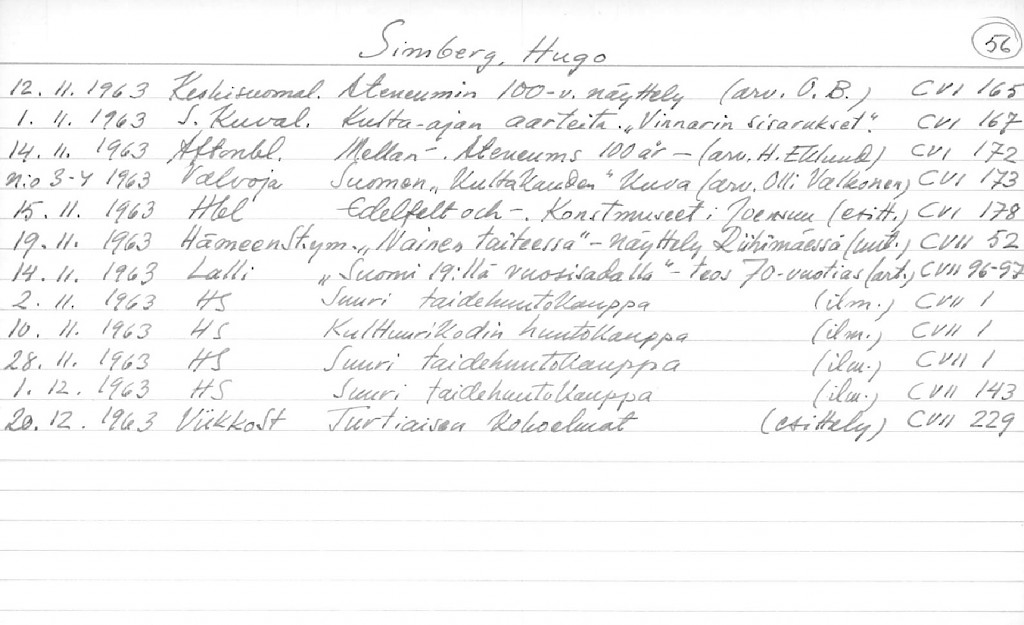 Simberg, Hugo 56
12. 11. 1963 Keskisuomal. Ateneumin 100-v. näyttely (arv. O. B.) CVI 165
1. 11. 1963 S. Kuval. Kulta-ajan aarteita. „Vinnarin sisarukset". CVI 167
14. 11. 1963 Aftonbl. Mellan -. Ateneums 100 år - (arv. H. Eklund) CVI 172
n:o 3-4 1963 Valvoja Suomen „Kultakauden" kuva (arv. Olli Valkonen) CVI 173
15. 11. 1963 Hbl Edelfelt och -. Konstmuseet i Joensuu (esitt.) CVI 178
19. 11. 1963 HämeenSt.ym. „Nainen taiteessa" - näyttely Riihimäessä (uut.) CVII 52
14. 11. 1963 Lalli „Suomi 19:llä vuosisadalla" - teos 70-vuotias (art.) CVII 96-97
2. 11. 1963 HS Suuri taidehuutokauppa (ilm.) CVII 1
10. 11. 1963 HS Kulttuurikodin huutokauppa (ilm.) CVII 1
28. 11. 1963 HS Suuri taidehuutokauppa (ilm.) CVII 1
1. 12. 1963 HS Suuri taidehuutokauppa (ilm.) CVII 143
20. 12. 1963 ViikkoSt Turtiaisen kokoelmat (esittely) CVII 229